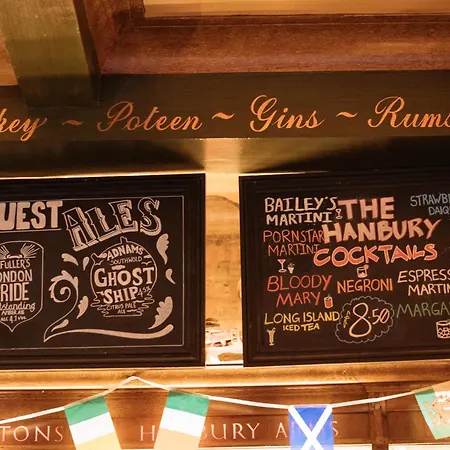 key ~ Poteen ~ Gins ~ Rums
UEST ALES
FULLER'S
LONDON
PRIDE
outstanding
AMBER ALE
ADNAMS
SOUTHWOLD
GHOST
SHIP 4.5%
CITRUS PALE
ALE
THE
HANBURY
COCKTAILS
BAILEY'S
MARTINI
PORNSTAR
MARTINI
BLOODY
MARY
LONG ISLAND
ICED TEA
NEGRONI
8.50
STRAWBE
DAIQ
ESPRESS
MARTIN
MARGA
TONS
HANBURY ARMS